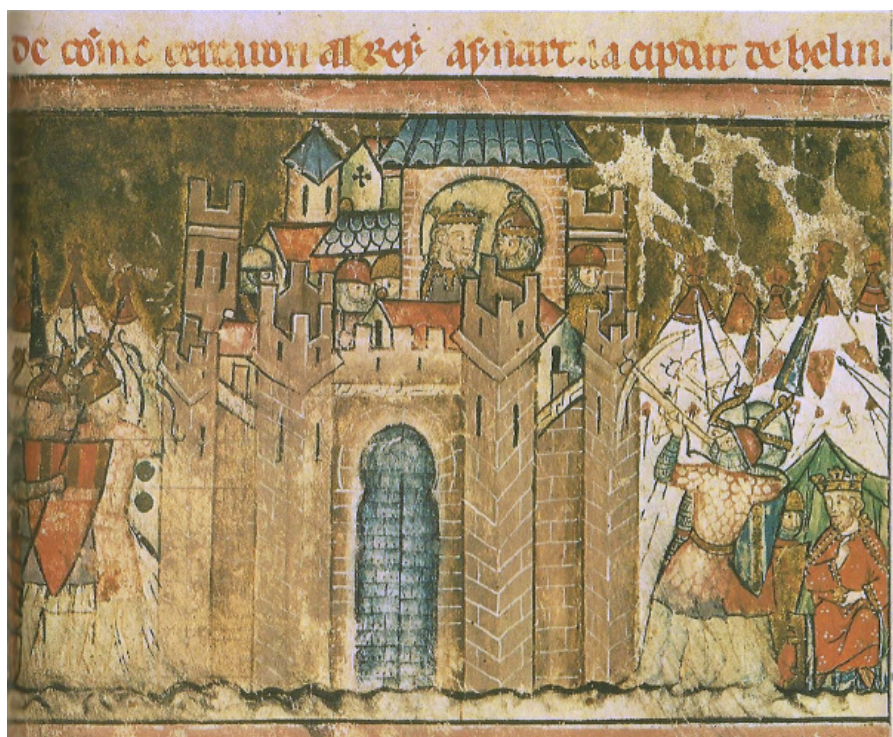 de cercaron al Rey aynart. la cipdat de belin